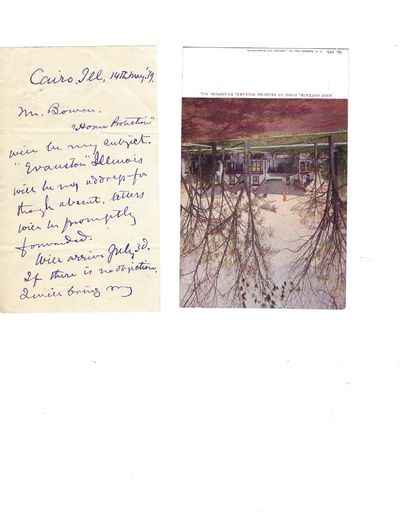 Cairo, Ill, 14th May, '79.
Mr. Bowen.
"Home Protection"
will be my subject.
"Evanston" Illinois
will be my address for
though absent, letters
will be promptly
forwarded.
Will arrive July 3d.
If there is no objection,
I will bring my
REST COTTAGE, HOME OF FRANCES WILLARD, EVANSTON, ILL.